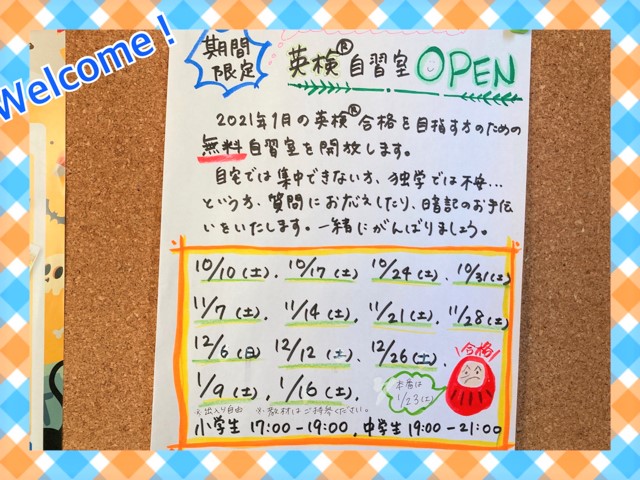 Welcome！
期間
限定
英検® 自習室 OPEN
2021年1月の英検®合格を目指す方のための
無料自習室を開放します。
自宅では集中できない方、独学では不安…
という方、質問にお答えしたり、暗記のお手伝
いをいたします。一緒にがんばりましょう。
10/10(土). 10/17(土) 10/24(土). 10/31(土)
11/7(土). 11/14(土). 11/21(土). 11/28(土)
12/6(日) 12/12(土). 12/26(土).
1/9(土). 1/16(土).
合格
本番は
1/23(土)
※出入り自由 ※教材はご持参ください。
小学生 17:00-19:00, 中学生 19:00-21:00